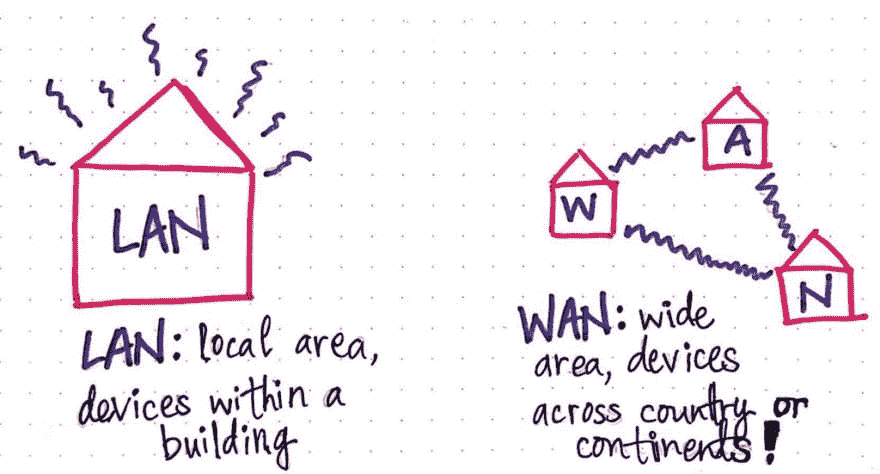 LAN
LAN: local area,
devices within a
building
W
A
N
WAN: wide
area, devices
across country or
continents!